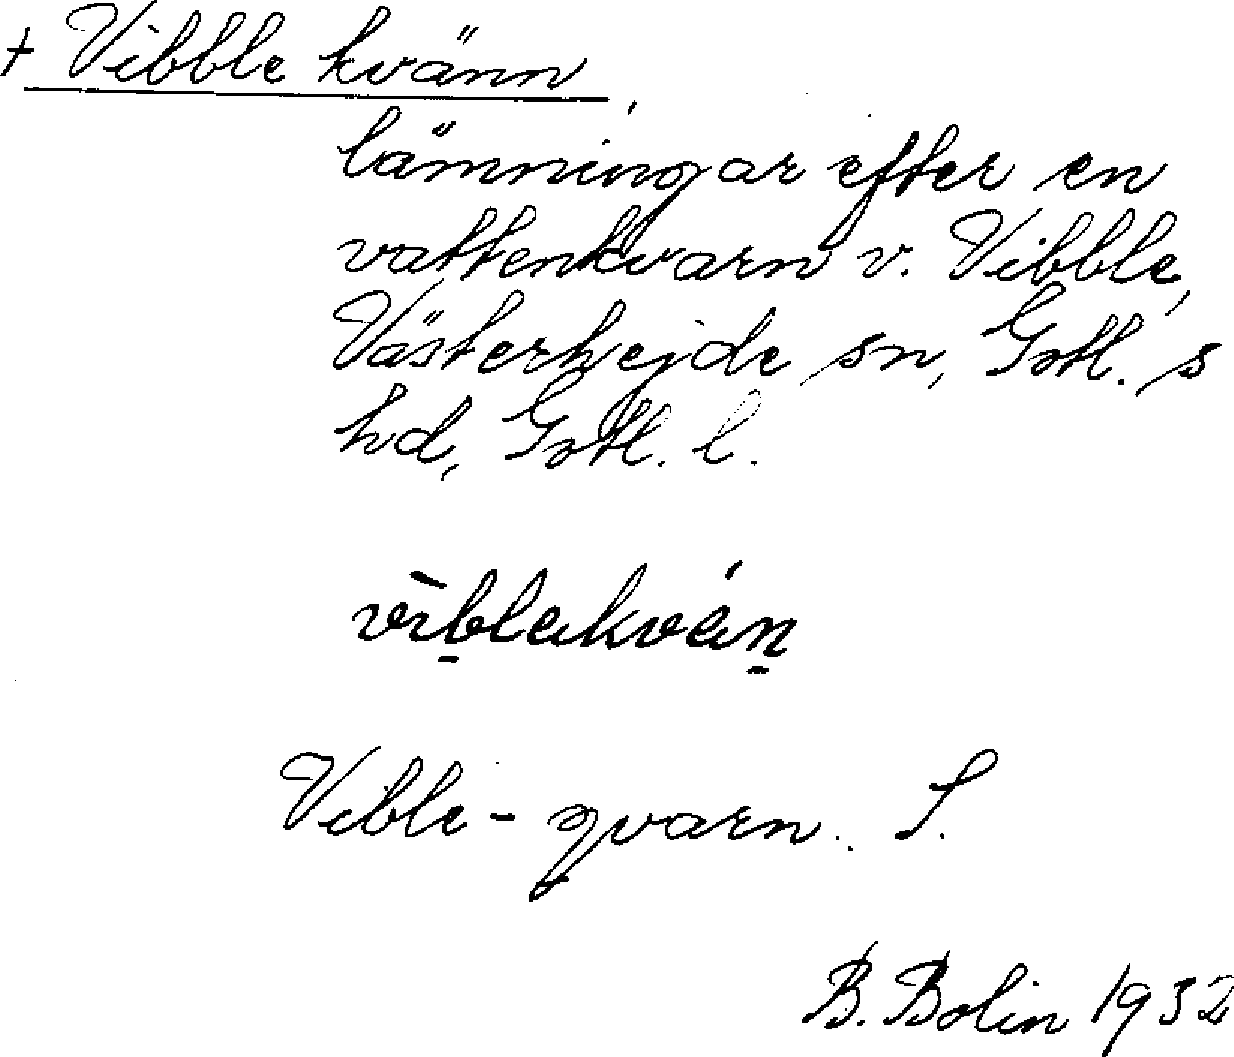 + Vibble kvänn,
lämningar efter en
vattenkvarn v. Vibble,
Västerhejde sn, Gotl. s
hd, Gotl. l.
Vible-qvarn. S.
B. Bolin 1932